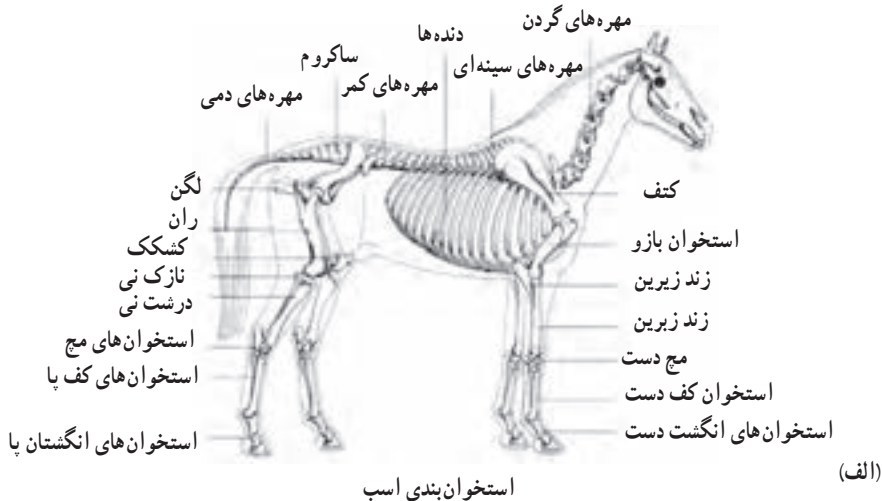 مهره‌های گردن
دنده‌ها
ساکروم
مهره‌های سینه‌ای
مهره‌های کمر
مهره‌های دمی
لگن
ران
کشکک
نازک نی
درشت نی
استخوان‌های مچ
استخوان‌های کف پا
استخوان‌های انگشتان پا
کتف
استخوان بازو
زند زیرین
زند زبرین
مچ دست
استخوان کف دست
استخوان‌های انگشت دست
(الف)
استخوان‌بندی اسب